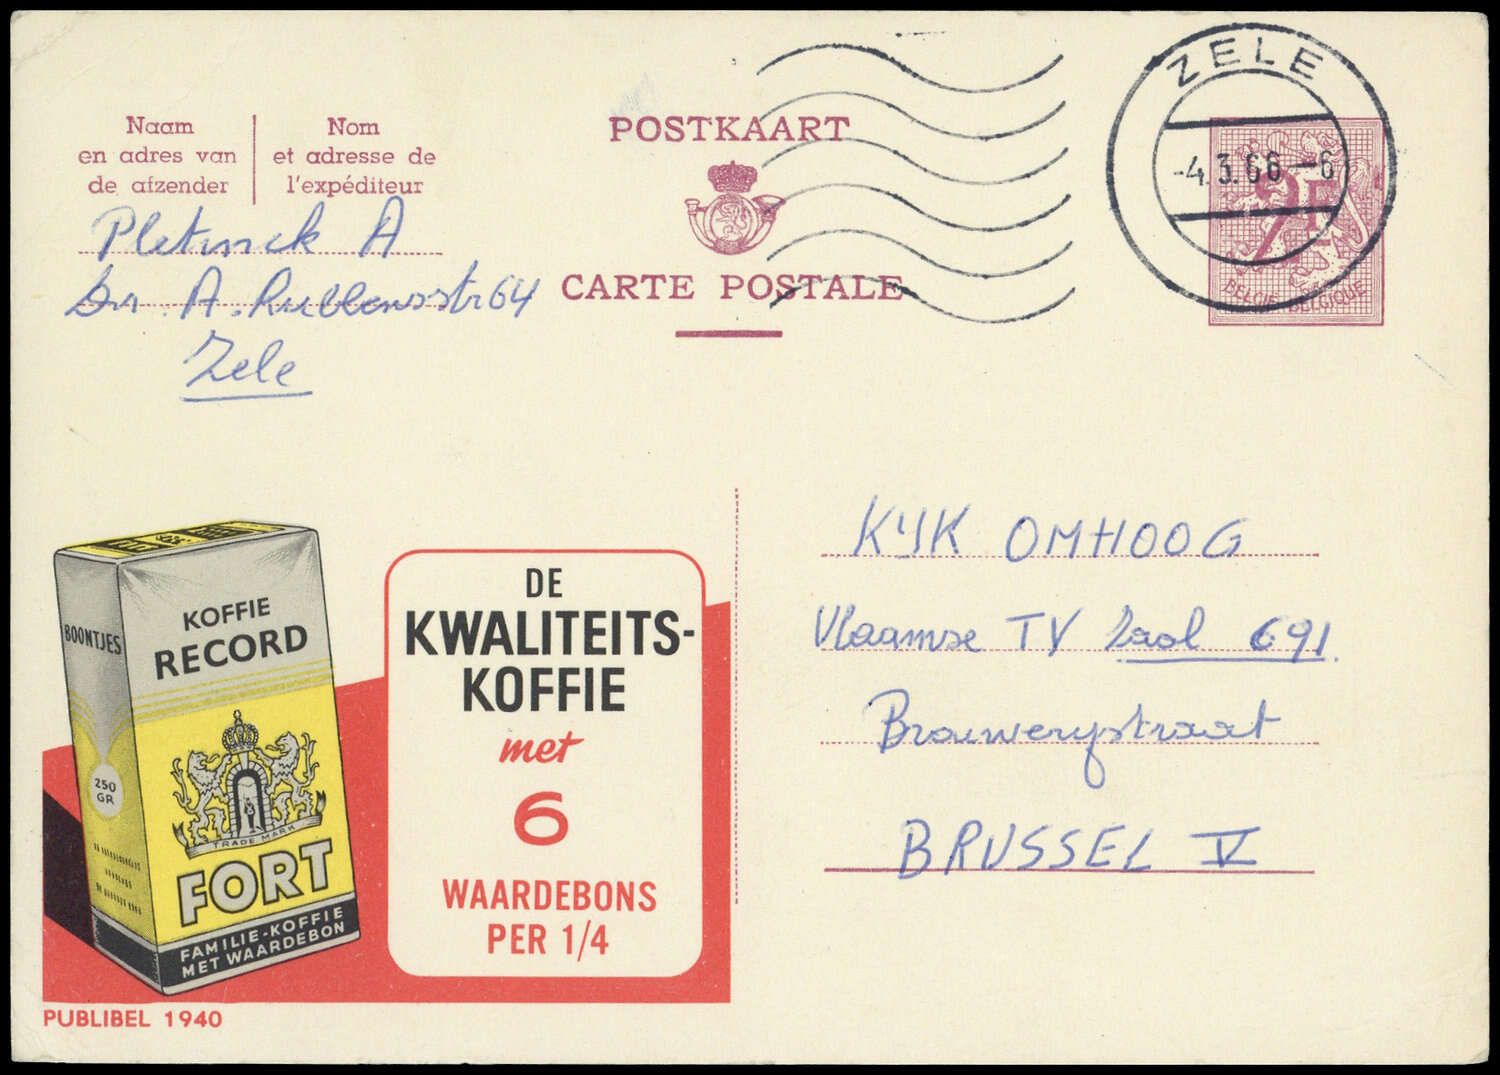 Naam
en adres van
de afzender
Nom
et adresse de
l'expéditeur
Pletinck A
Dr. A. Rubbensstr 64
Zele
POSTKAART
CARTE POSTALE
ZELE
-4.3.66-6
2F
BELGIE-BELGIQUE
KOFFIE
RECORD
BOONTJES
250
GR
TRADE MARK
FORT
FAMILIE-KOFFIE
MET WAARDEBON
DE
KWALITEITS-
KOFFIE
met
6
WAARDEBONS
PER 1/4
PUBLIBEL 1940
KIJK OMHOOG
Vlaamse TV Zaal 691
Brouwerijstraat
BRUSSEL V